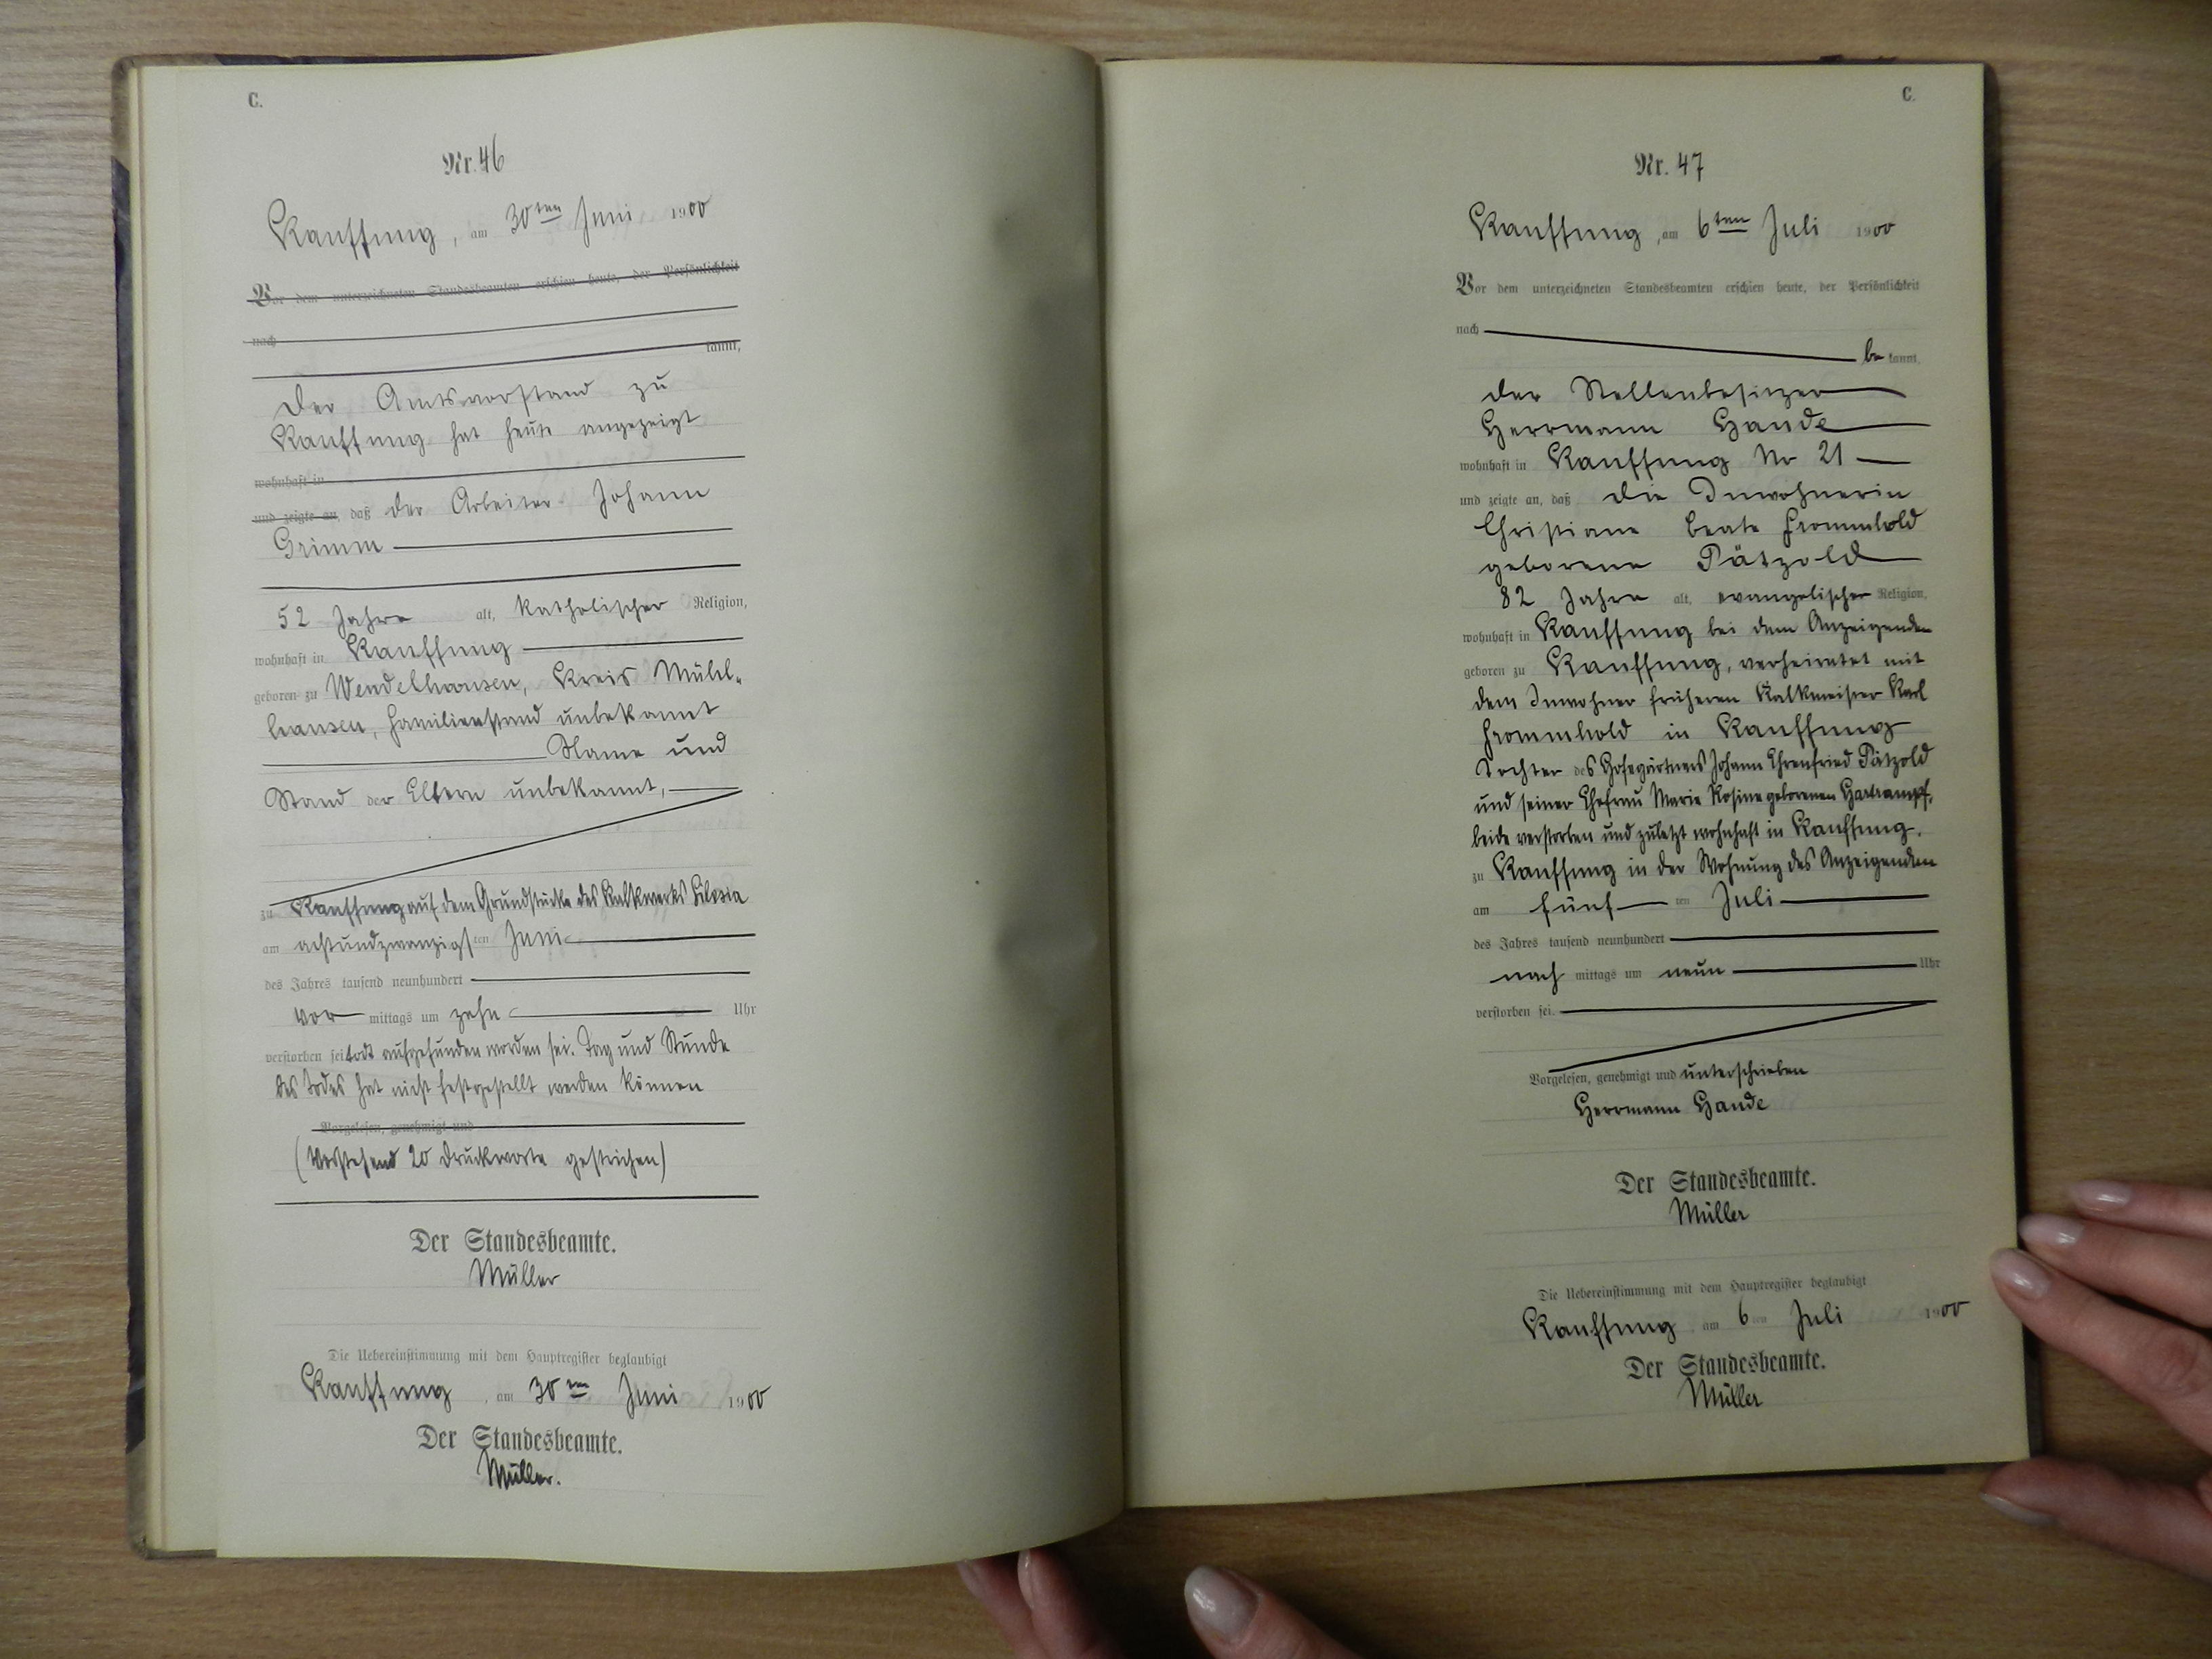 C.
Nr. 46
Kauffung, am 30ten Juni 1900
Vor dem unterzeichneten Standesbeamten erschien heute, der Persönlichkeit
nach
kannt,
Der Amtsvorstand zu
Kauffung hat heute angezeigt
wohnhaft in
und zeigte an, daß der Arbeiter Johann
Grimm
52 Jahre alt, katholischer Religion,
wohnhaft in Kauffung
geboren zu Wendelhausen, Kreis Mühl-
hausen, Familienstand unbekannt
Name und
Stand der Eltern unbekannt,
zu Kauffung auf dem Grundstücke des Kalkwerks Silesia
am achtundzwanzigsten Juni
des Jahres tausend neunhundert
Vor mittags um zehn Uhr
verstorben sei todt aufgefunden worden sei. Tag und Stunde
des Todes hat nicht festgestellt werden können
Vorgelesen, genehmigt und
(Vorstehend 20 Druckworte gestrichen)
Der Standesbeamte.
Müller
Die Uebereinstimmung mit dem Hauptregister beglaubigt
Kauffung, am 30ten Juni 1900
Der Standesbeamte.
Müller.
C.
Nr. 47
Kauffung, am 6ten Juli 1900
Vor dem unterzeichneten Standesbeamten erschien heute, der Persönlichkeit
nach
be kannt,
der Stellenbesitzer
Herrmann Hande
wohnhaft in Kauffung No 21
und zeigte an, daß die Inwohnerin
Christiane Beate Frommhold
geborene Pätzold
82 Jahre alt, evangelischer Religion,
wohnhaft in Kauffung bei dem Anzeigenden
geboren zu Kauffung, verheiratet mit
dem Inwohner früheren Kalkmeister Karl
Frommhold in Kauffung
Tochter des Hofegärtners Johann Ehrenfried Pätzold
und seiner Ehefrau Marie Rosine geborenen Hartrampf,
beide verstorben und zuletzt wohnhaft in Kauffung.
zu Kauffung in der Wohnung des Anzeigenden
am fünf ten Juli
des Jahres tausend neunhundert
nach mittags um neun Uhr
verstorben sei.
Vorgelesen, genehmigt und unterschrieben
Herrmann Hande
Der Standesbeamte.
Müller
Die Uebereinstimmung mit dem Hauptregister beglaubigt
Kauffung am 6ten Juli 1900
Der Standesbeamte.
Müller